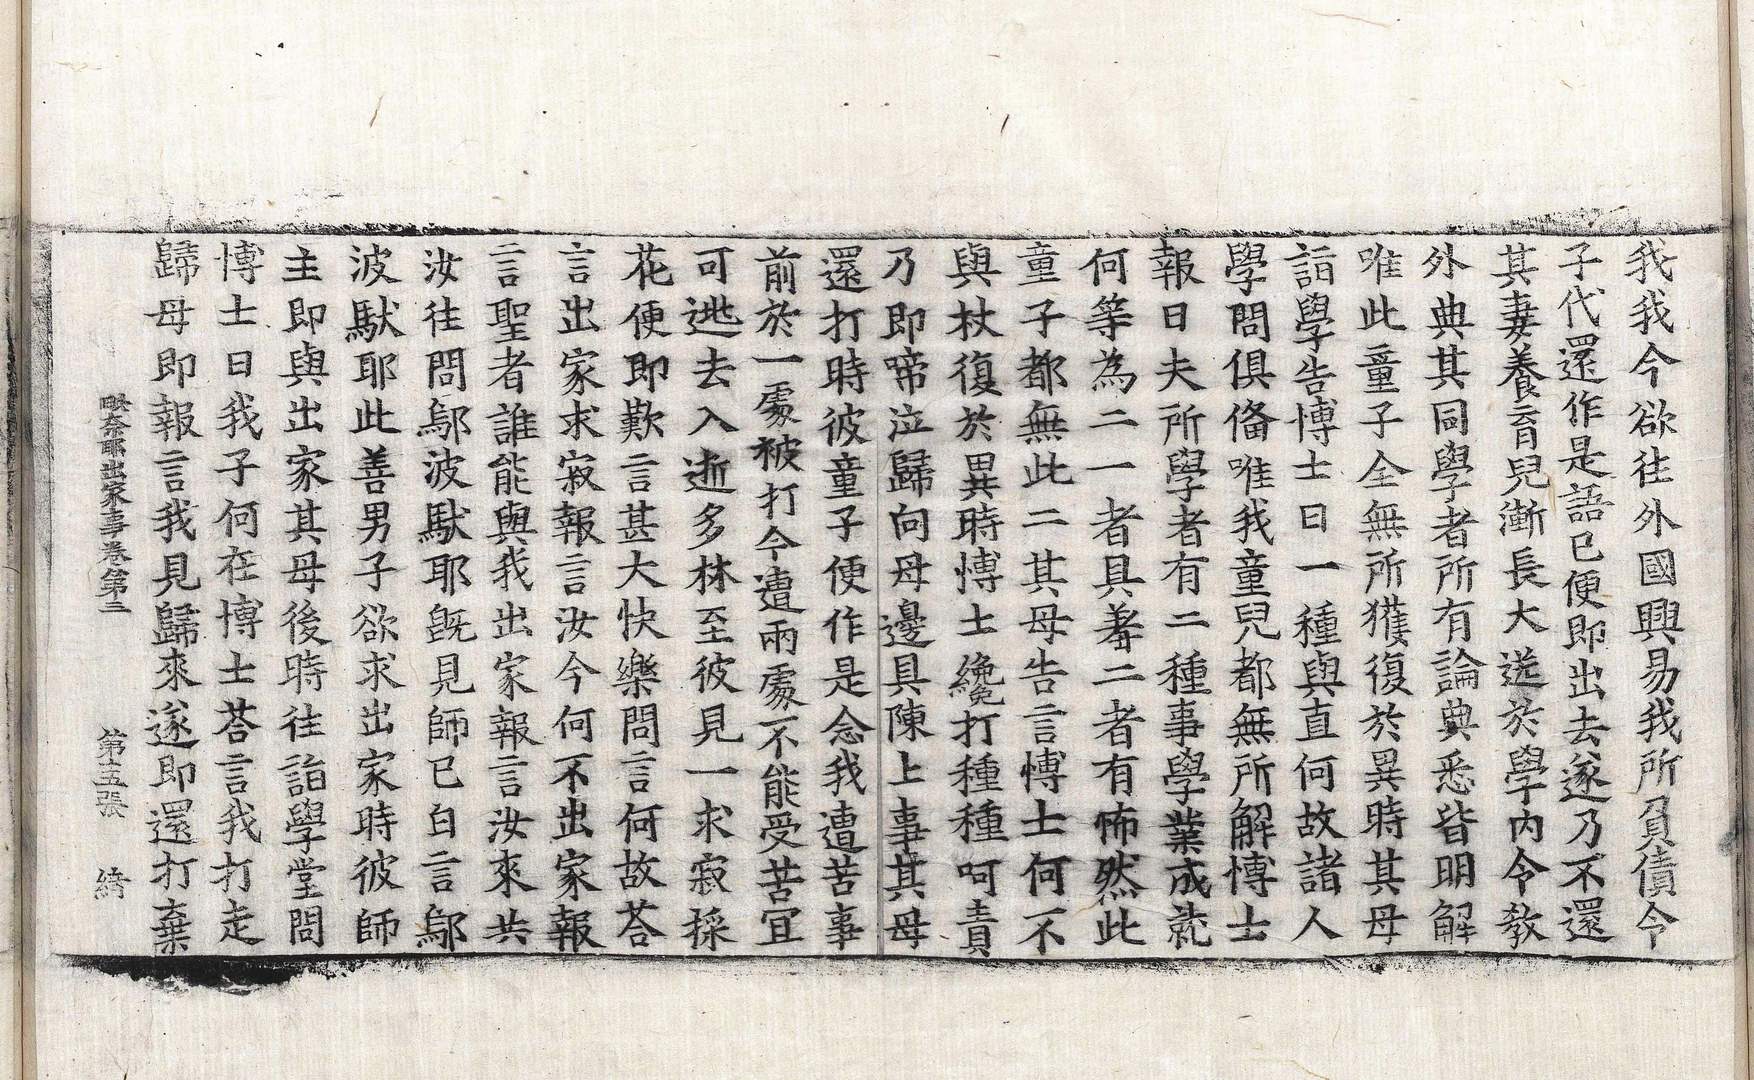 我我今欲往外國興易我所負債令
子代還作是語已便即出去遂乃不還
其妻養育兒漸長大送於學內令教
外典其同學者所有論典悉皆明解
唯此童子全無所獲復於異時其母
詣學告博士曰一種與直何故諸人
學問俱俻唯我童兒都無所解博士
報曰夫所學者有二種事學業成就
何等為二一者具羞二者有怖然此
童子都無此二其母告言博士何不
與杖復於異時博士纔打種種呵責
乃即啼泣歸向母邊具陳上事其母
還打時彼童子便作是念我遭苦事
前於一處被打今遭兩處不能受苦宜
可逃去入逝多林至彼見一求寂採
花便即歎言甚大快樂問言何故荅
言出家求寂報言汝今何不出家報
言聖者誰能與我出家報言汝來共
汝往問鄔波馱耶既見師已白言鄔
波馱耶此善男子欲求出家時彼師
主即與出家其母後時往詣學堂問
博士曰我子何在博士荅言我打走
歸母即報言我見歸來遂即還打棄
出家事卷第三 第十五張 綺